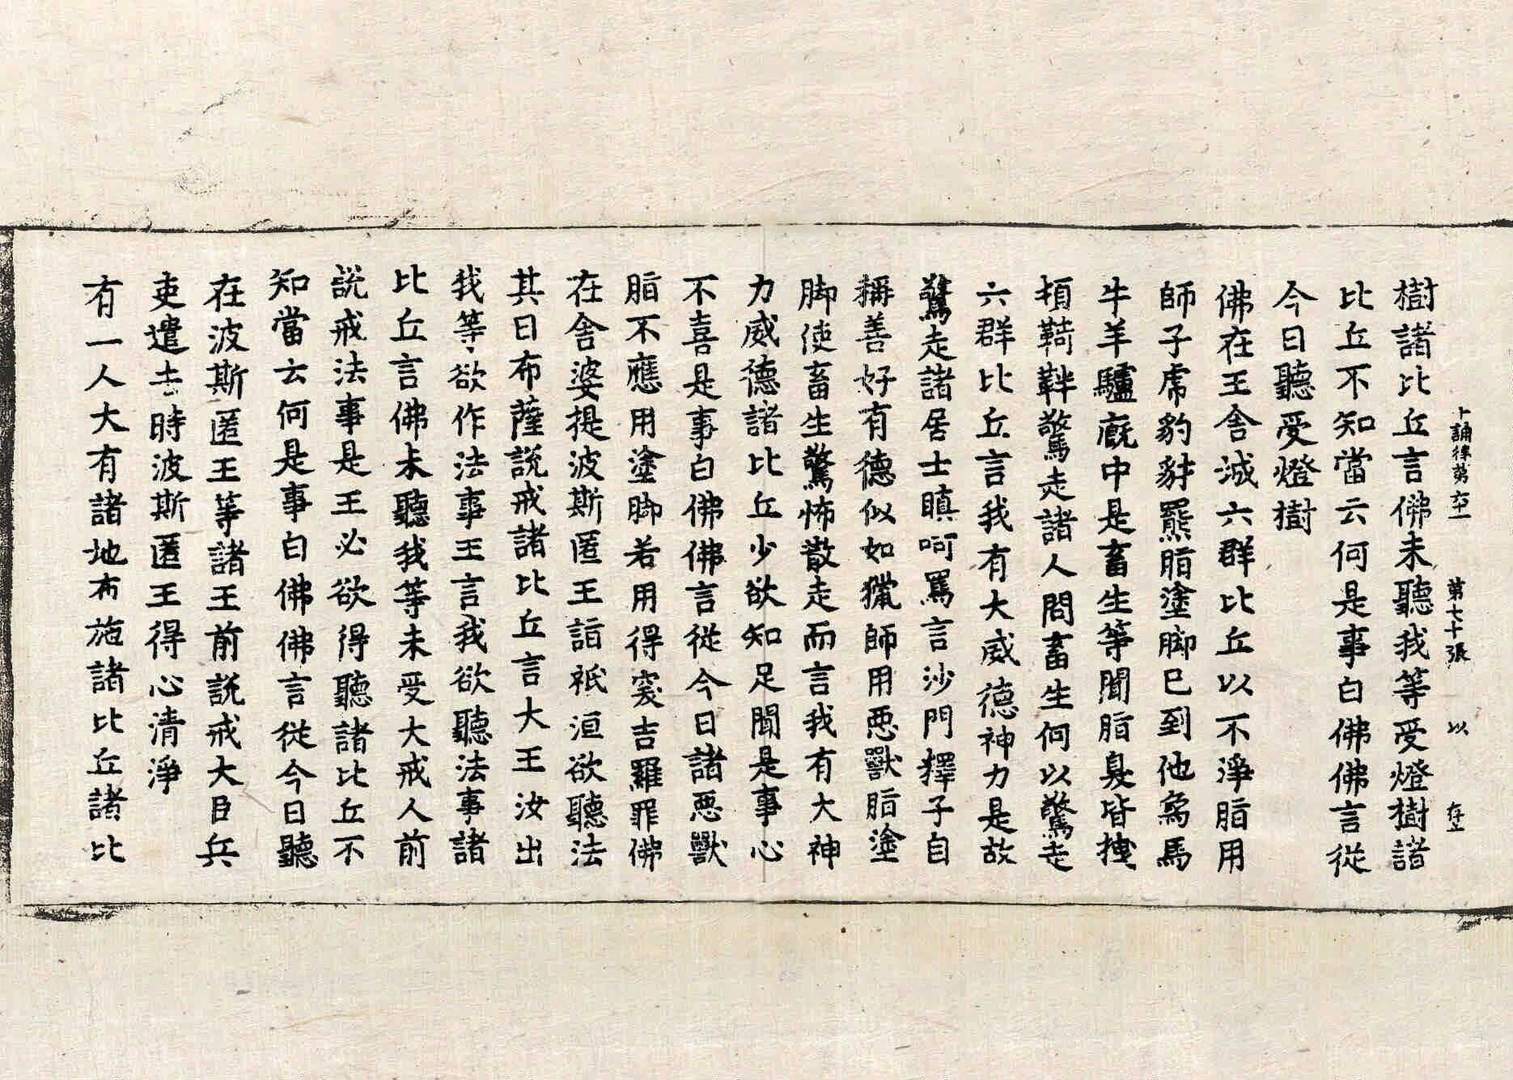 樹諸比丘言佛未聽我等受燈樹諸
比丘不知當云何是事白佛佛言從
今日聽受燈樹
佛在王舍城六群比丘以不淨脂用
師子虎豹豺羆脂塗脚已到他象馬
牛羊驢廐中是畜生等聞脂臭皆拽
頓鞿靽驚走諸人問畜生何以驚走
六群比丘言我有大威德神力是故
驚走諸居士瞋呵罵言沙門釋子自
稱善好有德似如獵師用惡獸脂塗
脚使畜生驚怖散走而言我有大神
力威德諸比丘少欲知足聞是事心
不喜是事白佛佛言從今日諸惡獸
脂不應用塗脚若用得突吉羅罪佛
在舍婆提波斯匿王詣祇洹欲聽法
其日布薩說戒諸比丘言大王汝出
我等欲作法事王言我欲聽法事諸
比丘言佛未聽我等未受大戒人前
說戒法事是王必欲得聽諸比丘不
知當云何是事白佛佛言從今日聽
在波斯匿王等諸王前說戒大臣兵
吏遣去時波斯匿王得心清淨
有一人大有諸地布施諸比丘諸比
十誦律第六十一 第七十張 以